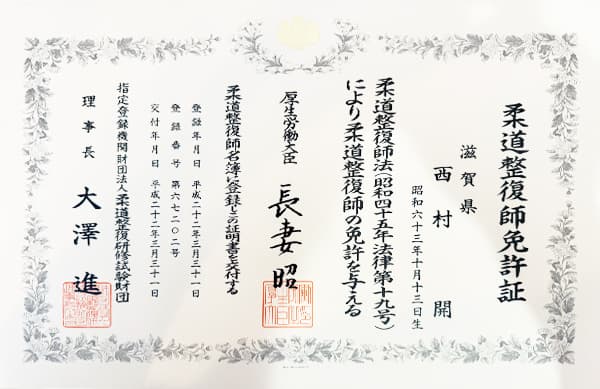 柔道整復師免許証
滋賀県
西村 開
昭和六十三年十月十三日生
柔道整復師法(昭和四十五年法律第十九号)
により柔道整復師の免許を与える
厚生労働大臣 長妻昭
柔道整復師名簿に登録しこの証明書を交付する
登録年月日 平成二十二年三月三十一日
登録番号 第六七二〇二号
交付年月日 平成二十二年三月三十一日
指定登録機関財団法人柔道整復研修試験財団
理事長 大澤進